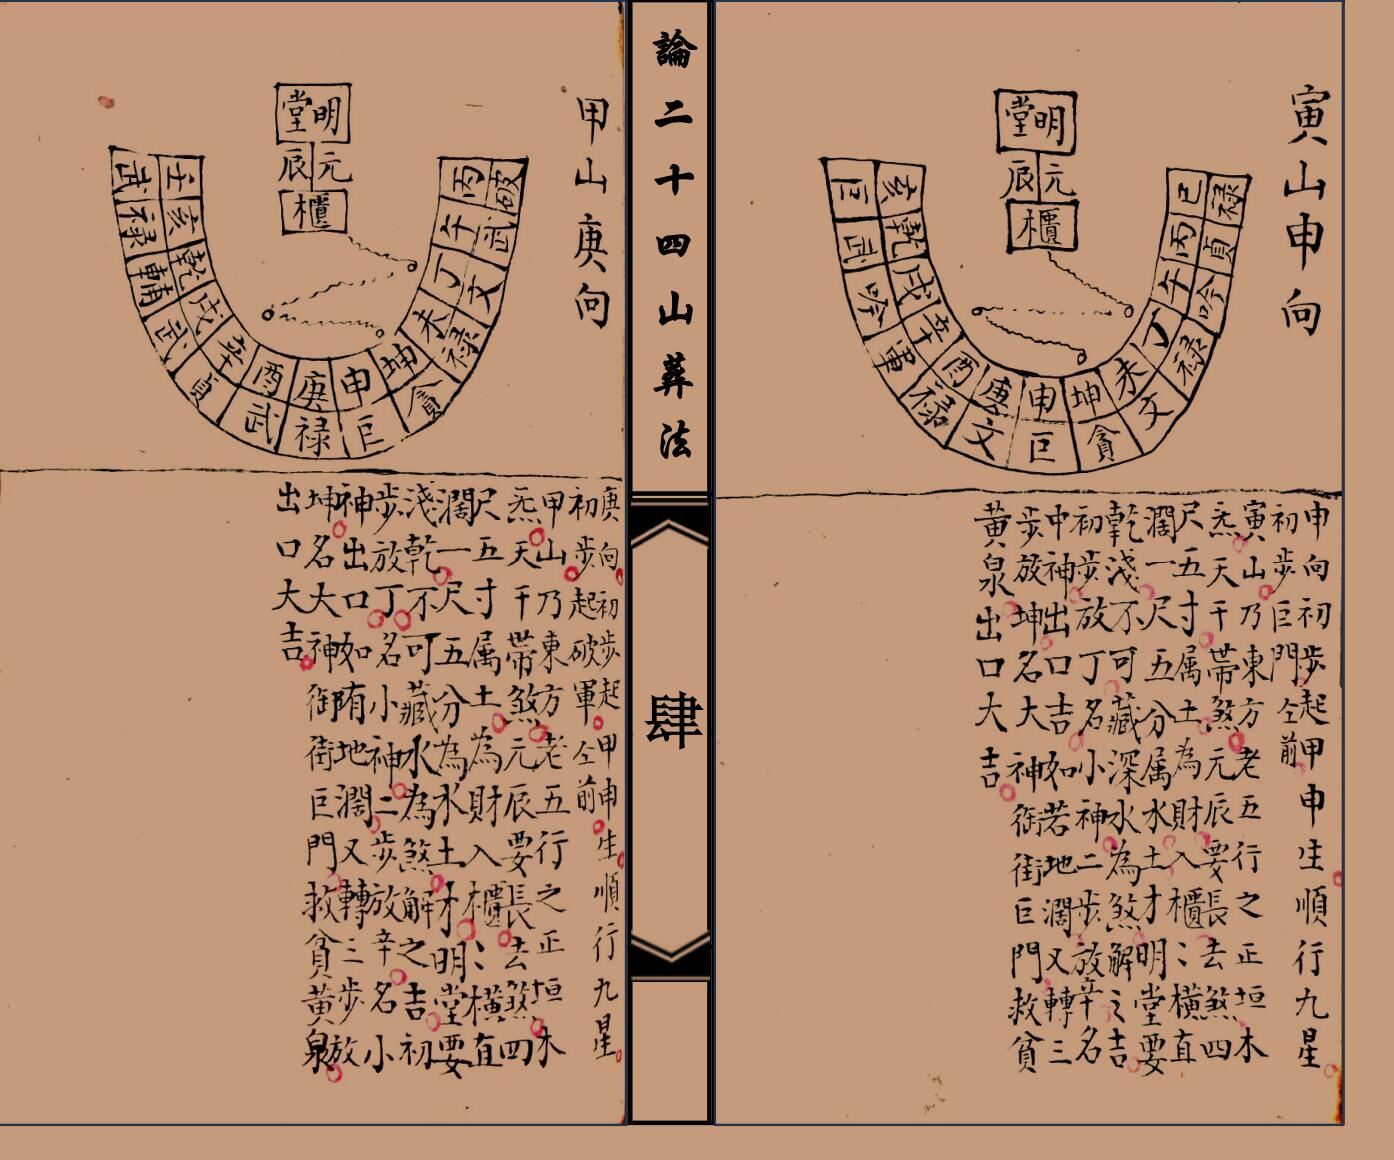 寅山申向
明堂
元辰
櫃
亥 乾 戌 辛 酉 庚 申 坤 未 丁 午 丙 巳
巨 武 吟 軍 祿 文 巨 貪 文 祿 吟 貞 祿
申向初步起甲申生順行九星
初步巨門仝前
寅山乃東方老五行之正垣木
炁天干帶煞元辰要長去煞四
尺五寸属土為財入櫃〻橫直
濶一尺五分属水土才明堂要
乾淺不可藏深水為煞解之吉
初步放丁名小神二步放辛名
中神出口吉如若地濶又轉三
步放坤名大神御街巨門救貧
黃泉出口大吉
論二十四山葬法
肆
甲山庚向
明堂
元辰
櫃
壬 亥 乾 戌 辛 酉 庚 申 坤 未 丁 午 丙
武 祿 輔 武 貞 武 祿 巨 貪 祿 文 武 破
庚向初步起甲申生順行九星
初步起破軍仝前
甲山乃東方老五行之正垣木
炁天干帶煞元辰要長去煞四
尺五寸属土為財入櫃〻橫直
濶一尺五分為水土才明堂要
淺乾不可藏水為煞解之吉初
步放丁名小神二步放辛名小
神出口如陏地濶又轉三步放
坤名大神御街巨門救貧黃泉
出口大吉